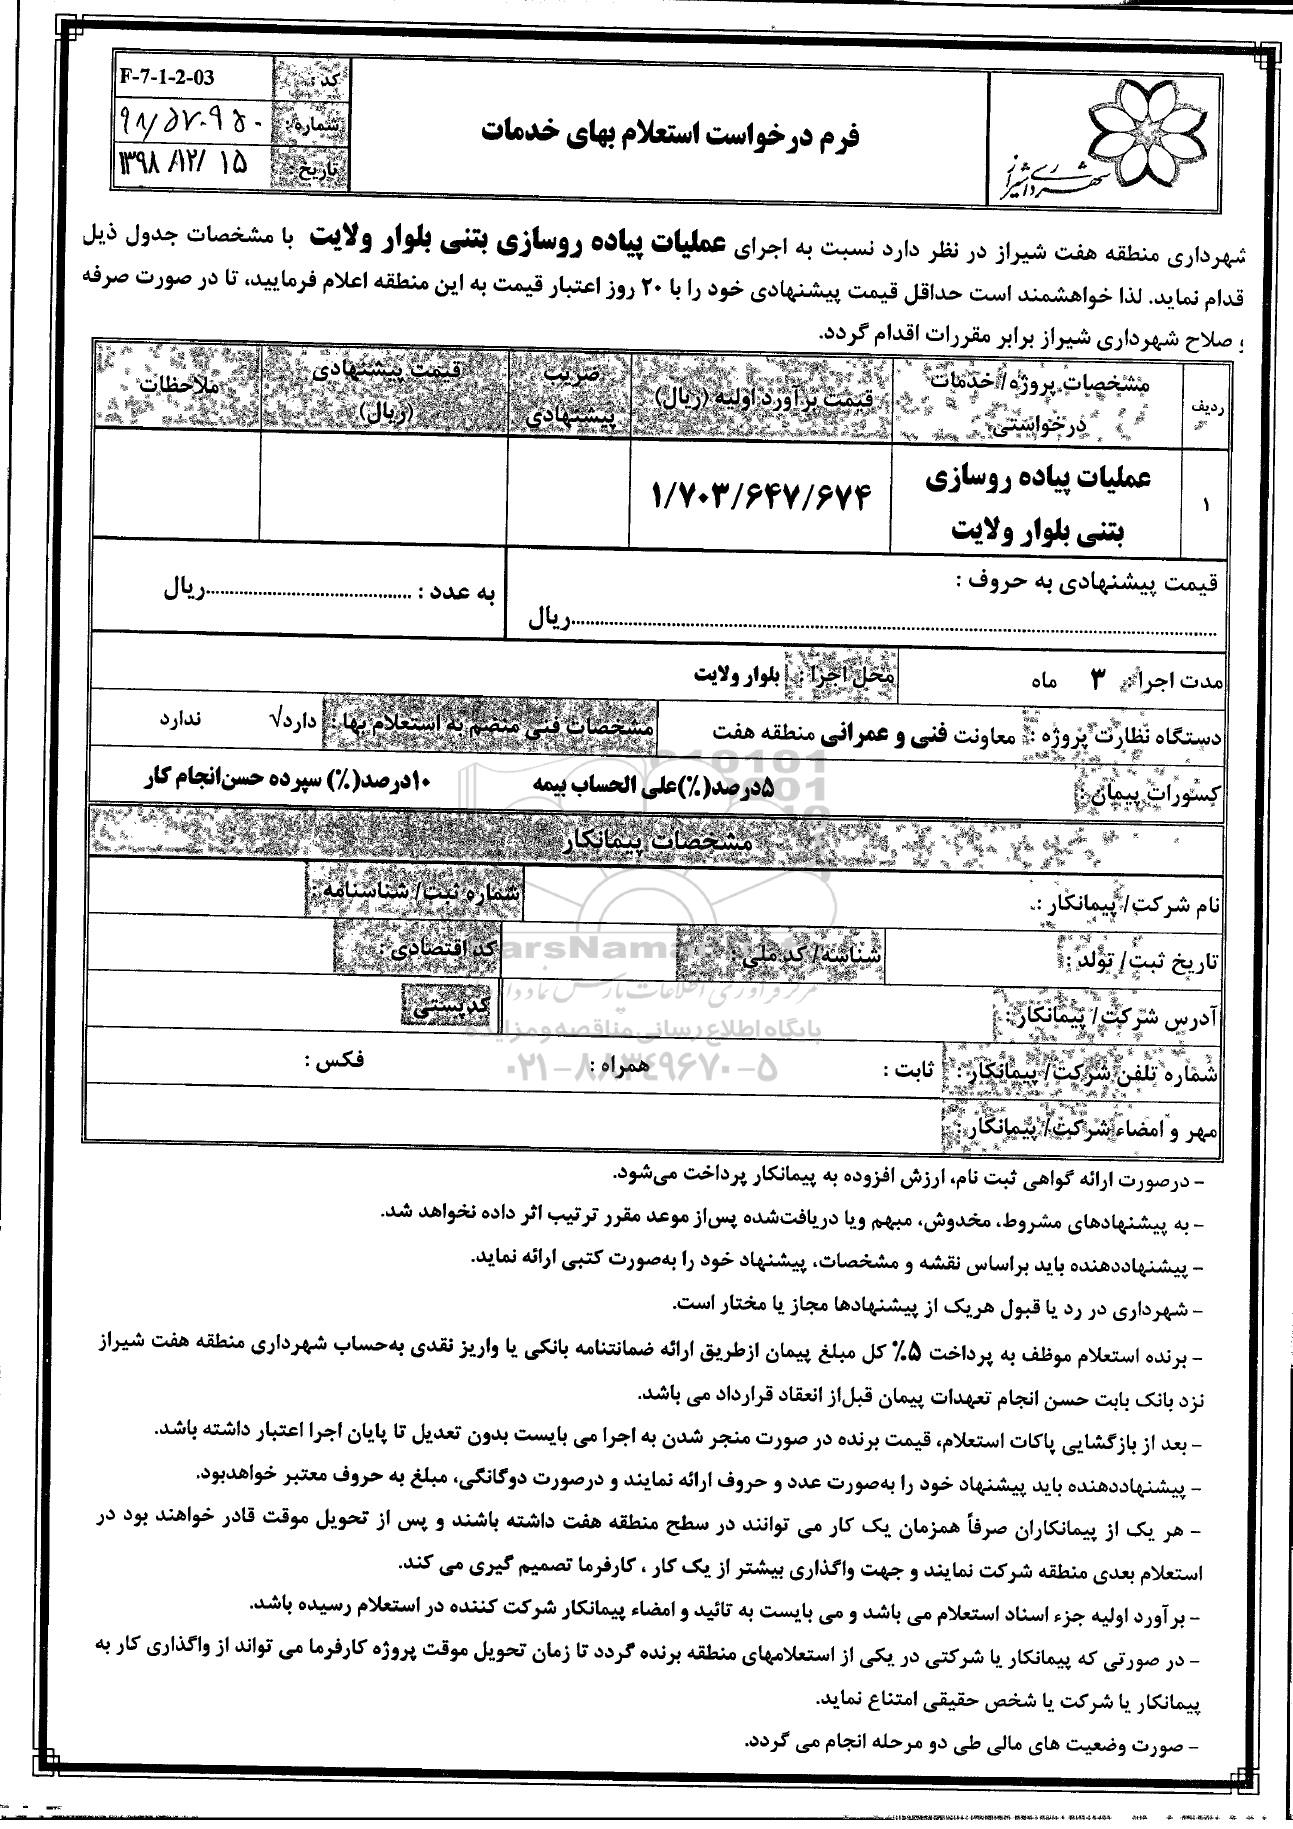 شهرداری شیراز
فرم درخواست استعلام بهای خدمات
کد : F-7-1-2-03
شماره: ۹۸/۵۷۰۹۵۰
تاریخ: ۱۳۹۸/۱۲/۱۵
شهرداری منطقه هفت شیراز در نظر دارد نسبت به اجرای عملیات پیاده روسازی بتنی بلوار ولایت با مشخصات جدول ذیل
قدام نماید. لذا خواهشمند است حداقل قیمت پیشنهادی خود را با ۲۰ روز اعتبار قیمت به این منطقه اعلام فرمایید، تا در صورت صرفه
و صلاح شهرداری شیراز برابر مقررات اقدام گردد.
ردیف مشخصات پروژه/ خدمات درخواستی قیمت برآورد اولیه (ریال) ضریب پیشنهادی قیمت پیشنهادی (ریال) ملاحظات
۱ عملیات پیاده روسازی بتنی بلوار ولایت ۱/۷۰۳/۶۴۷/۶۷۴
قیمت پیشنهادی به حروف :
..........ریال به عدد : ..........ریال
مدت اجرا: ۳ ماه محل اجرا : بلوار ولایت
دستگاه نظارت پروژه : معاونت فنی و عمرانی منطقه هفت مشخصات فنی منضم به استعلام بها : دارد√ ندارد
کسورات پیمان : ۵درصد(٪)علی الحساب بیمه ۱۰درصد(٪) سپرده حسن‌انجام کار
مشخصات پیمانکار
نام شرکت/ پیمانکار : شماره ثبت/ شناسنامه :
تاریخ ثبت/ تولد : شناسه/ کد ملی : کد اقتصادی :
آدرس شرکت/ پیمانکار : کدپستی
شماره تلفن شرکت/ پیمانکار : ثابت : همراه : فکس :
مهر و امضاء شرکت/ پیمانکار :
پایگاه اطلاع رسانی مناقصه و مزایده
۰۲۱-۸۸۳۴۹۶۷۰-۵
- درصورت ارائه گواهی ثبت نام، ارزش افزوده به پیمانکار پرداخت می‌شود.
- به پیشنهادهای مشروط، مخدوش، مبهم ویا دریافت‌شده پس‌از موعد مقرر ترتیب اثر داده نخواهد شد.
- پیشنهاددهنده باید براساس نقشه و مشخصات، پیشنهاد خود را به‌صورت کتبی ارائه نماید.
- شهرداری در رد یا قبول هریک از پیشنهادها مجاز یا مختار است.
- برنده استعلام موظف به پرداخت ۵٪ کل مبلغ پیمان ازطریق ارائه ضمانتنامه بانکی یا واریز نقدی به‌حساب شهرداری منطقه هفت شیراز
نزد بانک بابت حسن انجام تعهدات پیمان قبل‌از انعقاد قرارداد می باشد.
- بعد از بازگشایی پاکات استعلام، قیمت برنده در صورت منجر شدن به اجرا می بایست بدون تعدیل تا پایان اجرا اعتبار داشته باشد.
- پیشنهاددهنده باید پیشنهاد خود را به‌صورت عدد و حروف ارائه نمایند و درصورت دوگانگی، مبلغ به حروف معتبر خواهدبود.
- هر یک از پیمانکاران صرفاً همزمان یک کار می توانند در سطح منطقه هفت داشته باشند و پس از تحویل موقت قادر خواهند بود در
استعلام بعدی منطقه شرکت نمایند و جهت واگذاری بیشتر از یک کار ، کارفرما تصمیم گیری می کند.
- برآورد اولیه جزء اسناد استعلام می باشد و می بایست به تائید و امضاء پیمانکار شرکت کننده در استعلام رسیده باشد.
- در صورتی که پیمانکار یا شرکتی در یکی از استعلامهای منطقه برنده گردد تا زمان تحویل موقت پروژه کارفرما می تواند از واگذاری کار به
پیمانکار یا شرکت یا شخص حقیقی امتناع نماید.
- صورت وضعیت های مالی طی دو مرحله انجام می گردد.